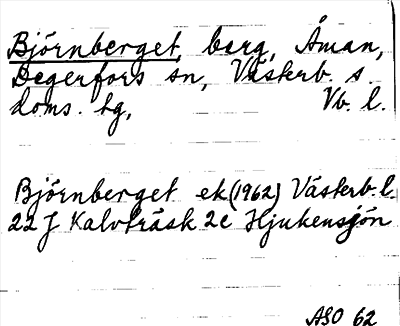 Björnberget, berg, Åman,
Degerfors sn, Västerb. s.
doms. hg, Vb. l.
Björnberget ek (1962) Västerb. l.
22 J Kalvträsk 2c Hjukensjön
ASO 62